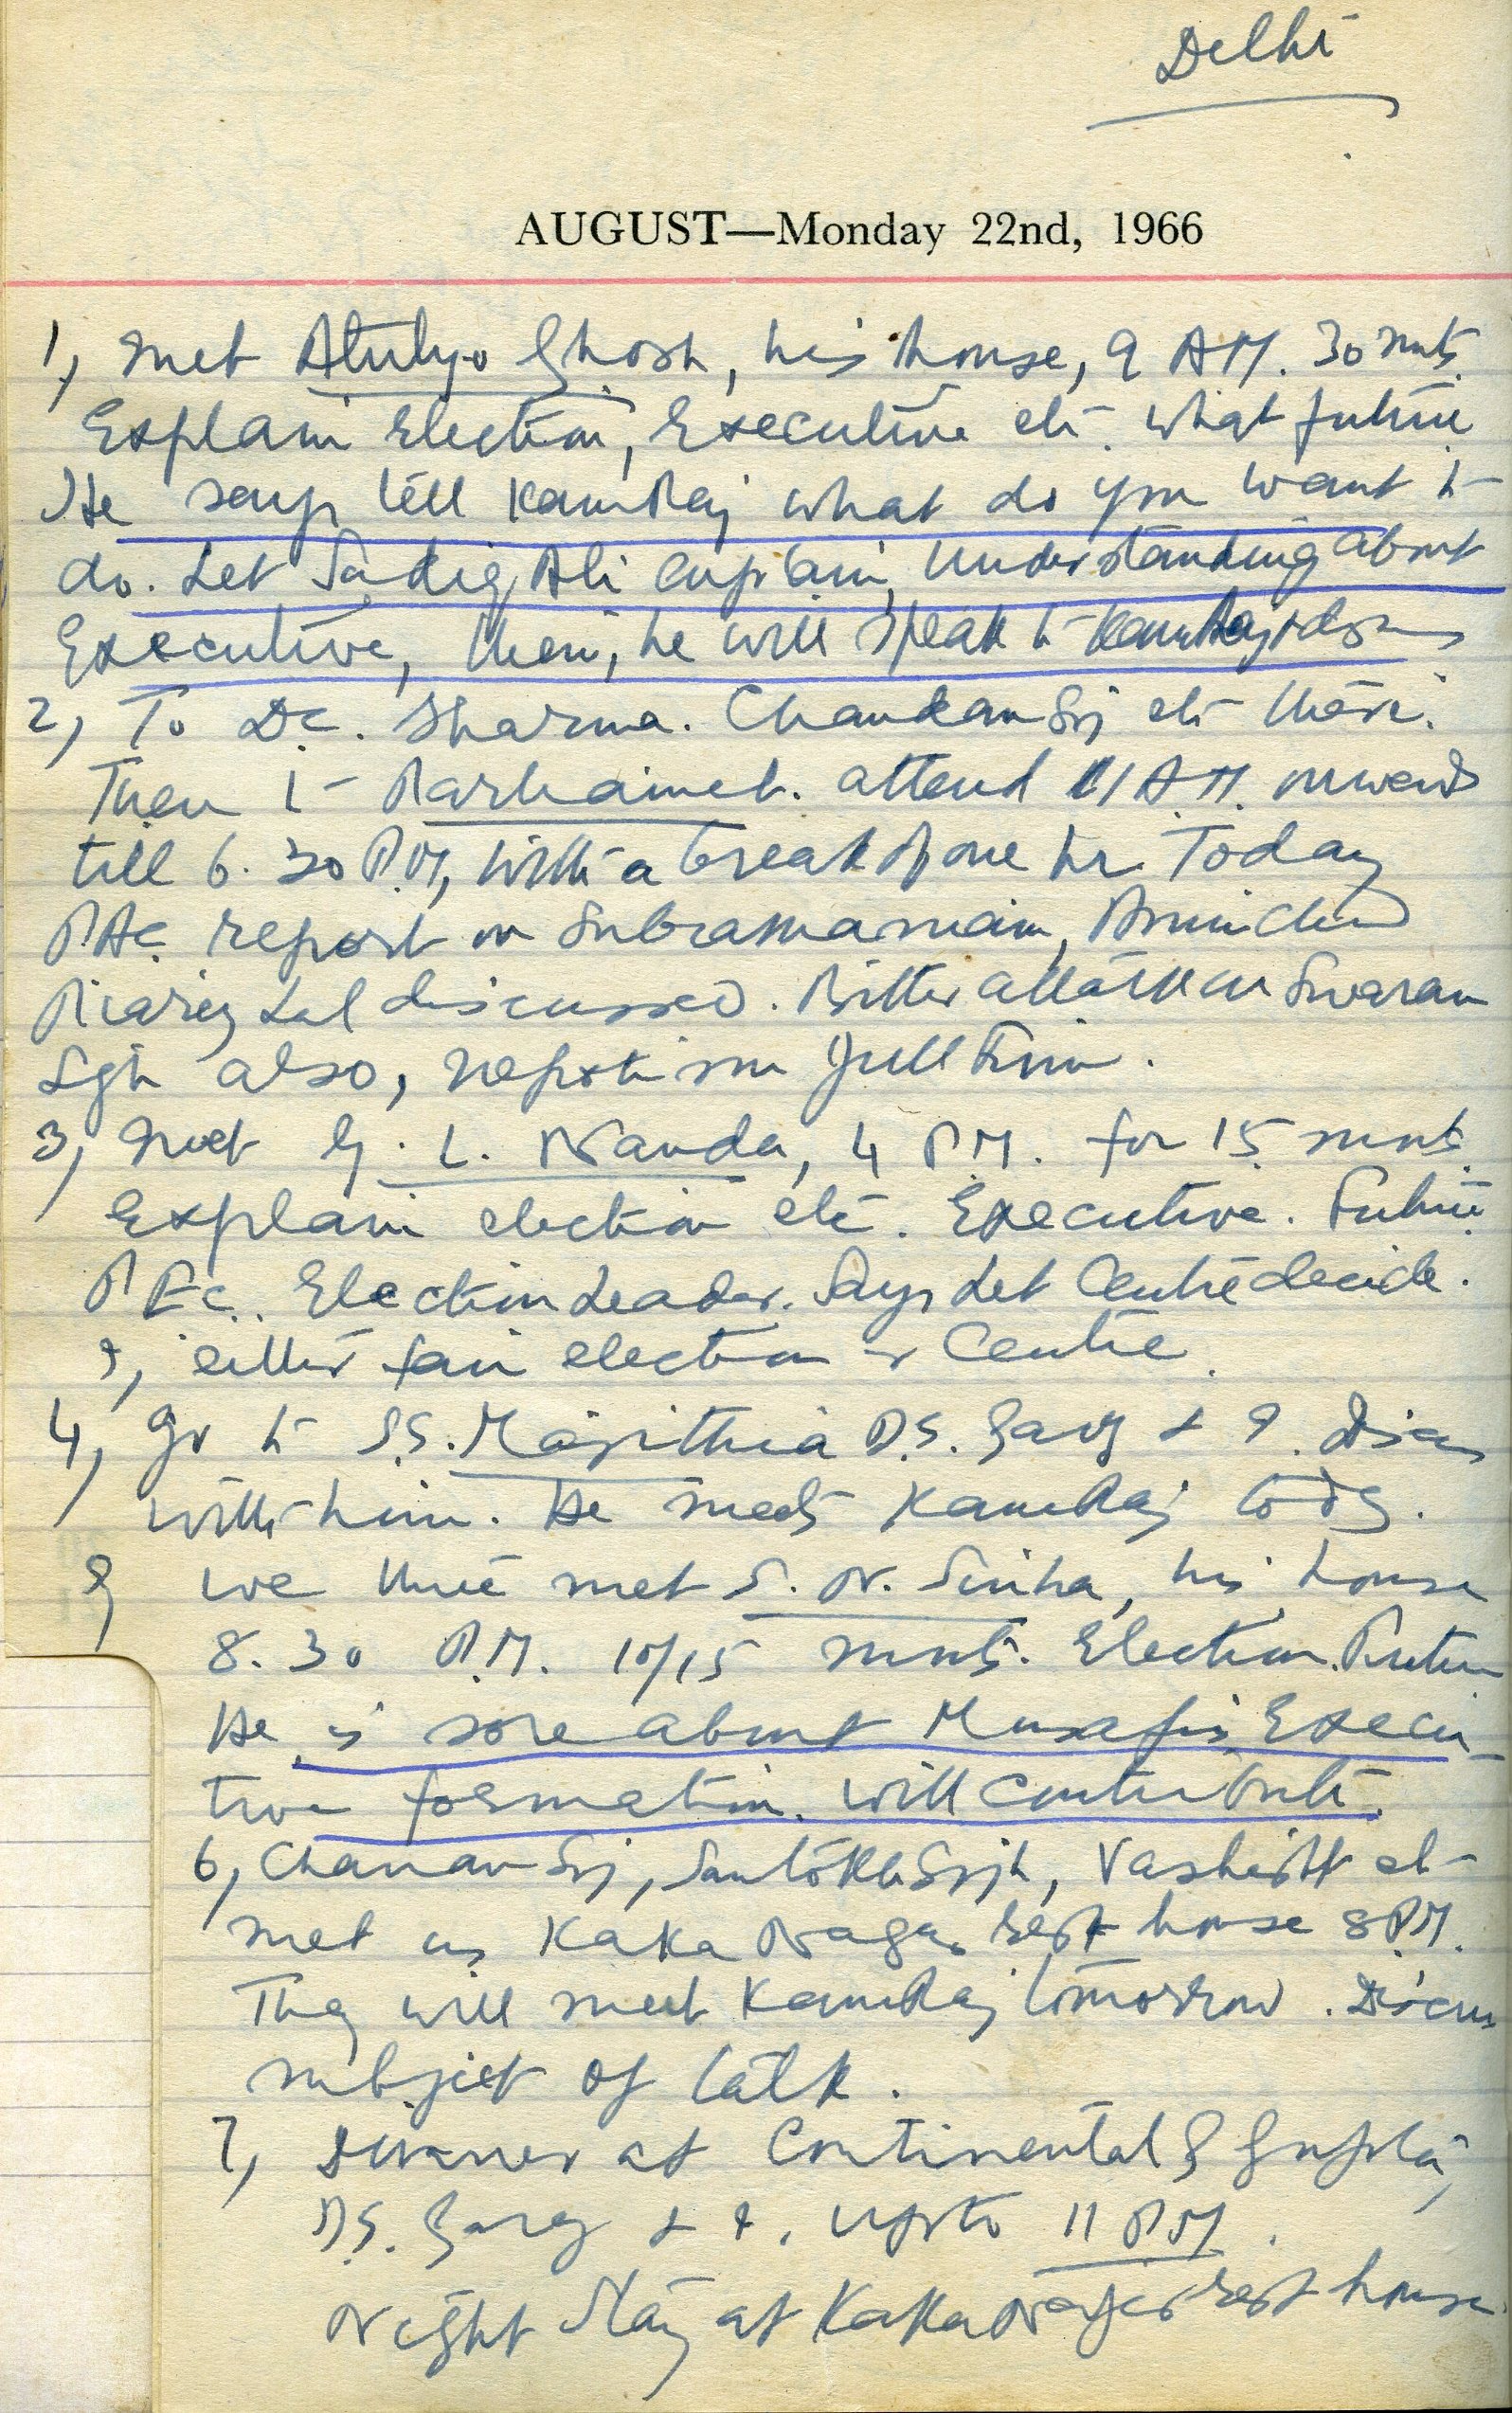 Delhi
AUGUST—Monday 22nd, 1966
1, Met Atulyo Ghosh, his house, 9 A.M. 30 mnts.
Explain election, Executive etc. What future
He says tell KamRaj what do you want to
do. Let Sadiq Ali explain, understanding about
Executive, then, he will speak to KamRaj
2, To D.C. Sharma. Chanan Sgj etc there.
Then to Parliamet. attend 11 A.M. onwards
till 6.30 P.M, with a break of one hr. Today
P.A.C. report on Subramaniam, Aminchand
Piarey Lal discussed. Bitter attack on Swaran
Sgh also, nepotism full time.
3, Met G. L. Nanda, 4 P.M. for 15 mnts.
Explain election etc. Executive. Future
P.E.C. Election Leader. Says Let Centre decide.
either fair election or Centre.
4, Go to S.S. Majithia D.S. Garg & I. Discuss
with him. He meets KamRaj today.
5 We three met S. N. Sinha, his house
8.30 P.M. 10/15 mnts. Election. Future
He is sore about Musafir, Execu-
tive formation. Will contribute.
6, Chanan Sgj, Santokh Sgjh, Vashisht etc
met us Kaka Nagar rest house 8 P.M.
They will meet KamRaj tomorrow. Discuss
subject of talk.
7, Dinner at Continental by Gupta,
D.S. Garg & I. Upto 11 P.M.
Night stay at Kaka Nagar rest house.